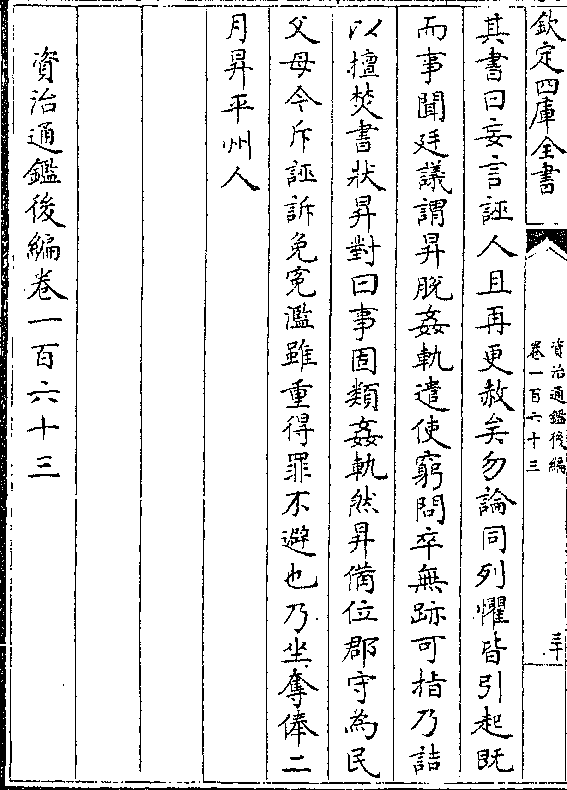 欽定四庫全書
資治通鑑後編
卷一百六十三
三十
其書曰妄言誣人且再更赦矣勿論同列懼皆引起既
而事聞廷議謂昇脫姦軌遣使窮問卒無跡可指乃詰
以擅焚書狀昇對曰事固類姦軌然昇備位郡守為民
父母今斥誣訴免寃濫雖重得罪不避也乃坐奪俸二
月昇平州人
資治通鑑後編卷一百六十三